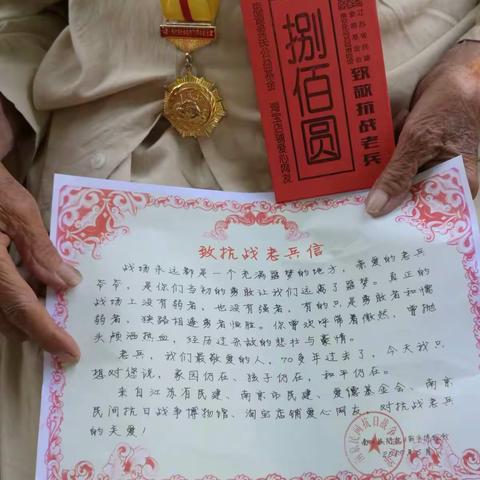 捌佰圆
致敬抗战老兵
致抗战老兵信
战场永远都是一个充满噩梦的地方，亲爱的老兵
爷爷，是你们当初的勇敢让我们远离了噩梦。真正的
战场上没有弱者，也没有强者，有的只是勇敢者和懦
弱者。狭路相逢勇者恒胜。你曾欢呼带着傲然，曾抛
头颅洒热血，经历过杀敌的悲壮与豪情。
老兵，我们最敬爱的人，70多年过去了，今天我只
想对您说，家园仍在、孩子仍在，和平仍在。
来自江苏省民建、南京市民建、爱德基金会、南京
民间抗日战争博物馆、淘宝店铺爱心网友，对抗战老兵
的关爱！